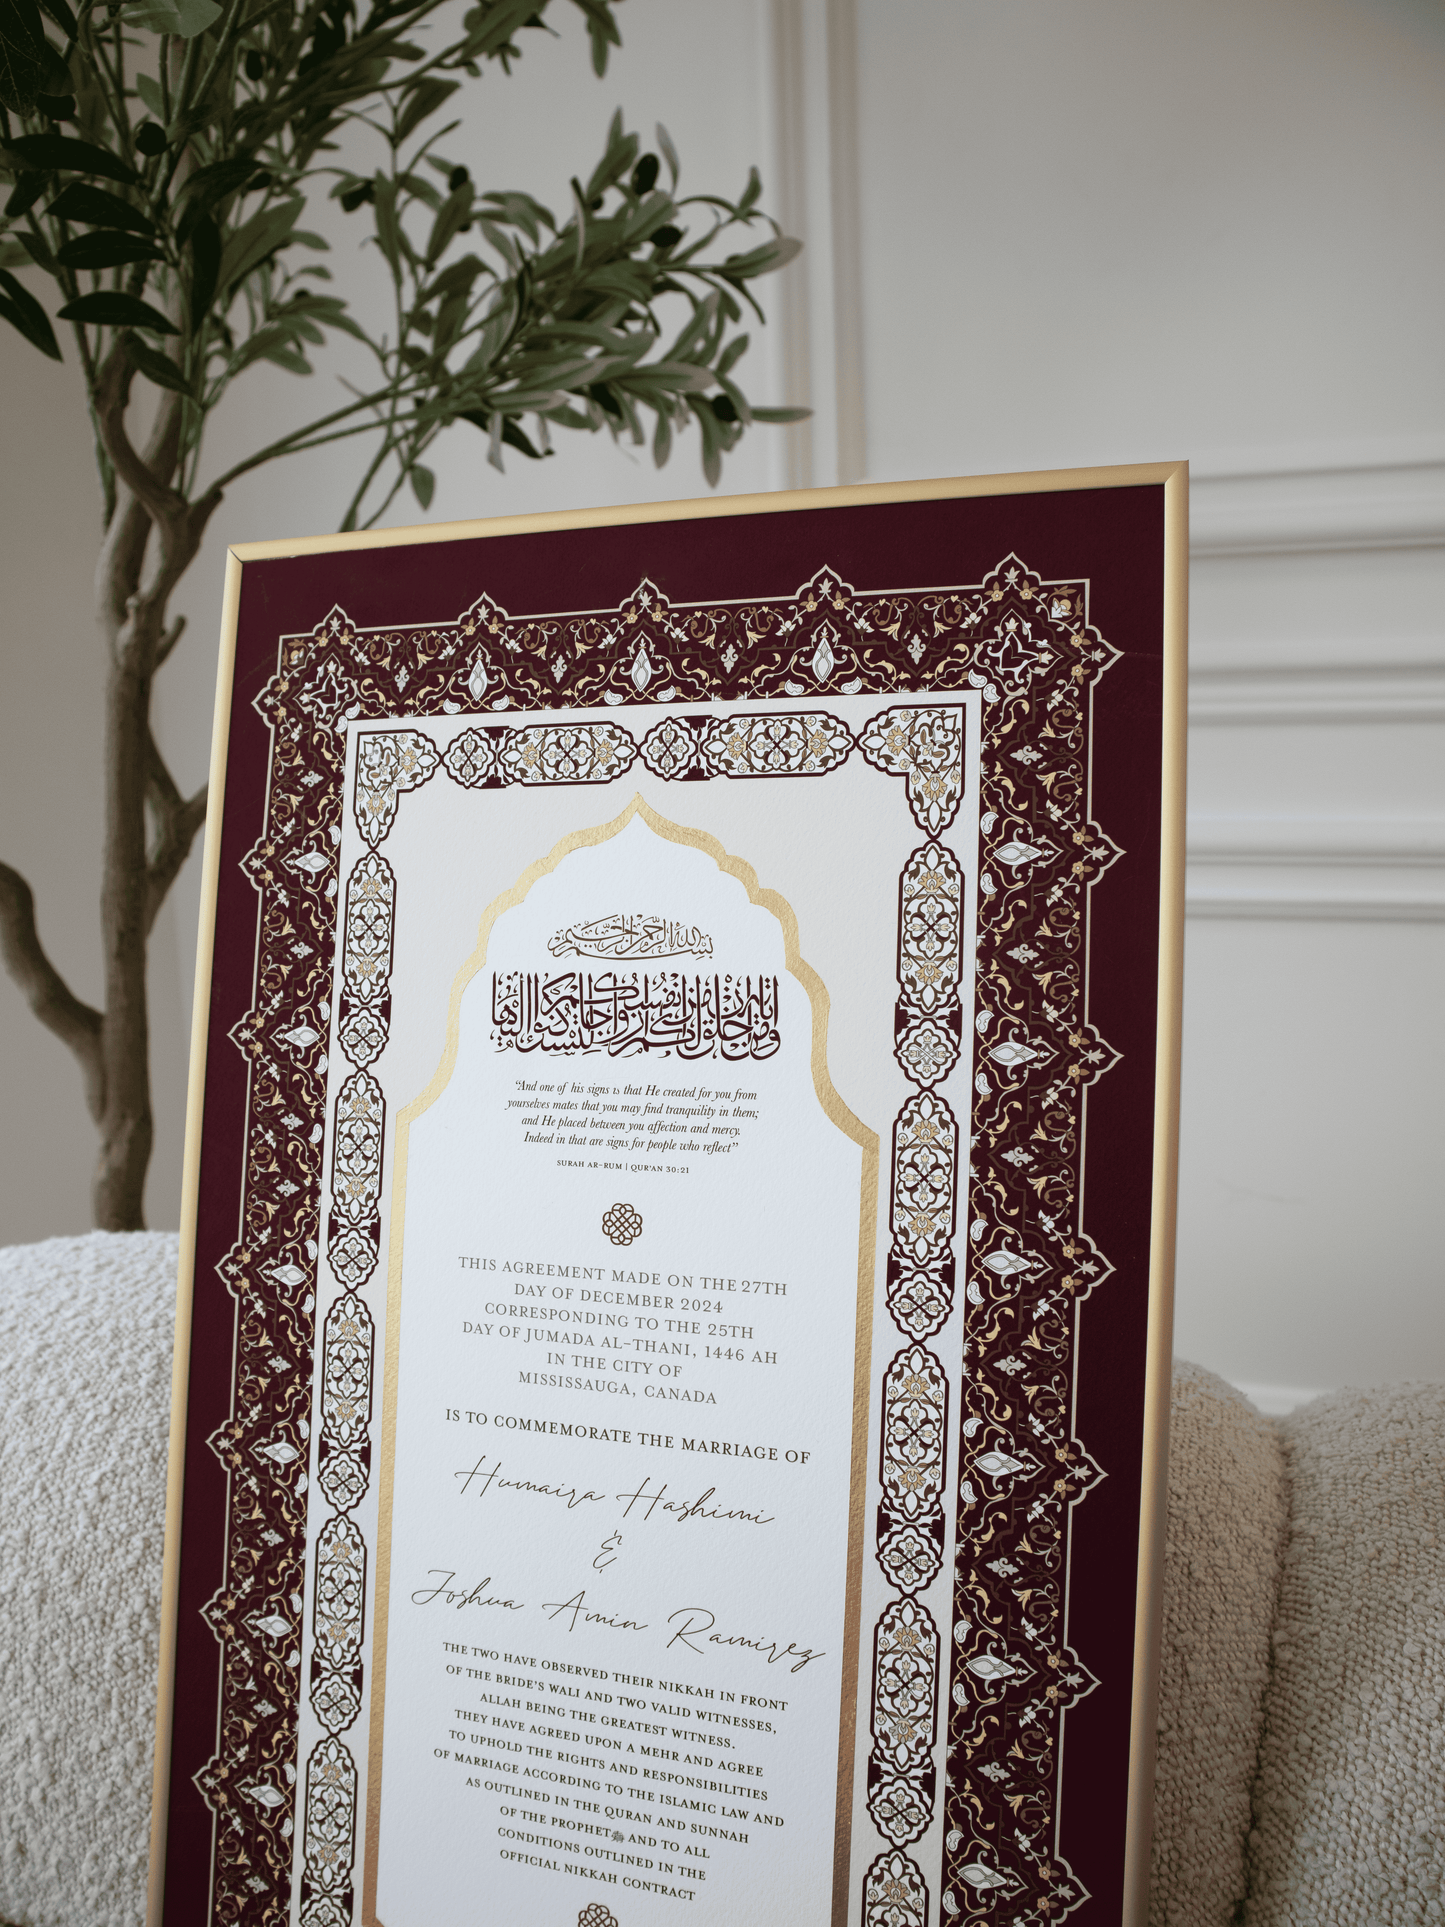 بسم الله الرحمن الرحيم
ومن آياته أن خلق لكم من أنفسكم أزواجا لتسكنوا إليها
“And one of his signs is that He created for you from
yourselves mates that you may find tranquility in them;
and He placed between you affection and mercy.
Indeed in that are signs for people who reflect”
SURAH AR-RUM | QUR'AN 30:21
THIS AGREEMENT MADE ON THE 27TH
DAY OF DECEMBER 2024
CORRESPONDING TO THE 25TH
DAY OF JUMADA AL-THANI, 1446 AH
IN THE CITY OF
MISSISSAUGA, CANADA
IS TO COMMEMORATE THE MARRIAGE OF
Humaira Hashimi
&
Joshua Amin Ramirez
THE TWO HAVE OBSERVED THEIR NIKKAH IN FRONT
OF THE BRIDE'S WALI AND TWO VALID WITNESSES,
ALLAH BEING THE GREATEST WITNESS.
THEY HAVE AGREED UPON A MEHR AND AGREE
TO UPHOLD THE RIGHTS AND RESPONSIBILITIES
OF MARRIAGE ACCORDING TO THE ISLAMIC LAW AND
AS OUTLINED IN THE QURAN AND SUNNAH
OF THE PROPHET ﷺ AND TO ALL
CONDITIONS OUTLINED IN THE
OFFICIAL NIKKAH CONTRACT